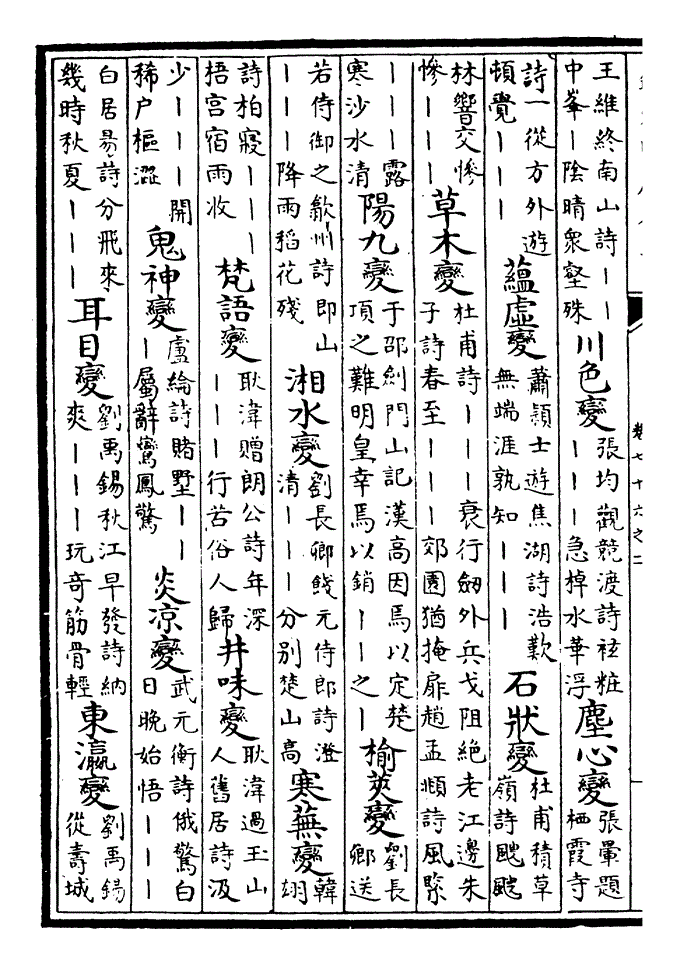 王維終南山詩｜｜中峯｜陰晴衆壑殊川色變張均觀競渡詩袨粧｜｜｜急棹水華浮塵心變張暈題栖霞寺
詩一從方外遊頓覺｜｜｜蘊虛變蕭穎士遊焦湖詩浩歎無端涯孰知｜｜｜石狀變杜甫積草嶺詩颼颼
林響交慘慘｜｜｜草木變杜甫詩｜｜｜衰行劒外兵戈阻絶老江邊朱子詩春至｜｜｜郊園猶掩扉趙孟頫詩風緊
｜｜｜露寒沙水清陽九變于邵劍門山記漢高因焉以定楚項之難明皇幸焉以銷｜｜之｜榆莢變劉長卿送
若侍御之歙州詩即山｜｜｜降雨稻花殘湘水變劉長卿餞元侍郎詩澄清｜｜｜分别楚山高寒蕪變韓翃
詩柏寢｜｜｜梧宮宿雨收梵語變耿湋贈朗公詩年深｜｜｜行苦俗人歸井味變耿湋過王山人舊居詩汲
少｜｜｜開稀户樞澀鬼神變盧綸詩賭墅｜｜｜屬辭鸞鳳驚炎凉變武元衡詩俄驚白日晚始悟｜｜｜
白居易詩分飛來幾時秋夏｜｜｜耳目變劉禹錫秋江早發詩納爽｜｜｜玩奇筋骨輕東瀛變劉禹錫從壽城
卷七十六之二